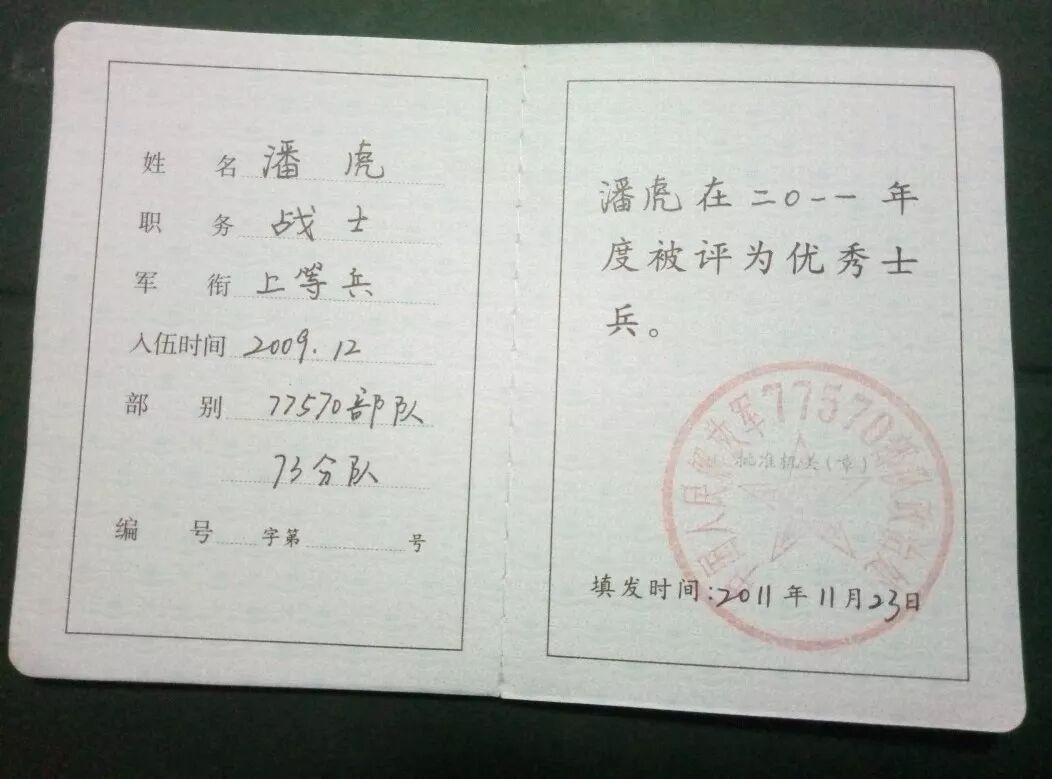 姓 名 潘 虎
职 务 战士
军 衔 上等兵
入伍时间 2009.12
部 别 77570部队
73分队
编 号 字第 号
潘虎在二〇一一年
度被评为优秀士
兵。
中国人民解放军77570部队政治处
批准机关(章)
填发时间:2011年11月23日